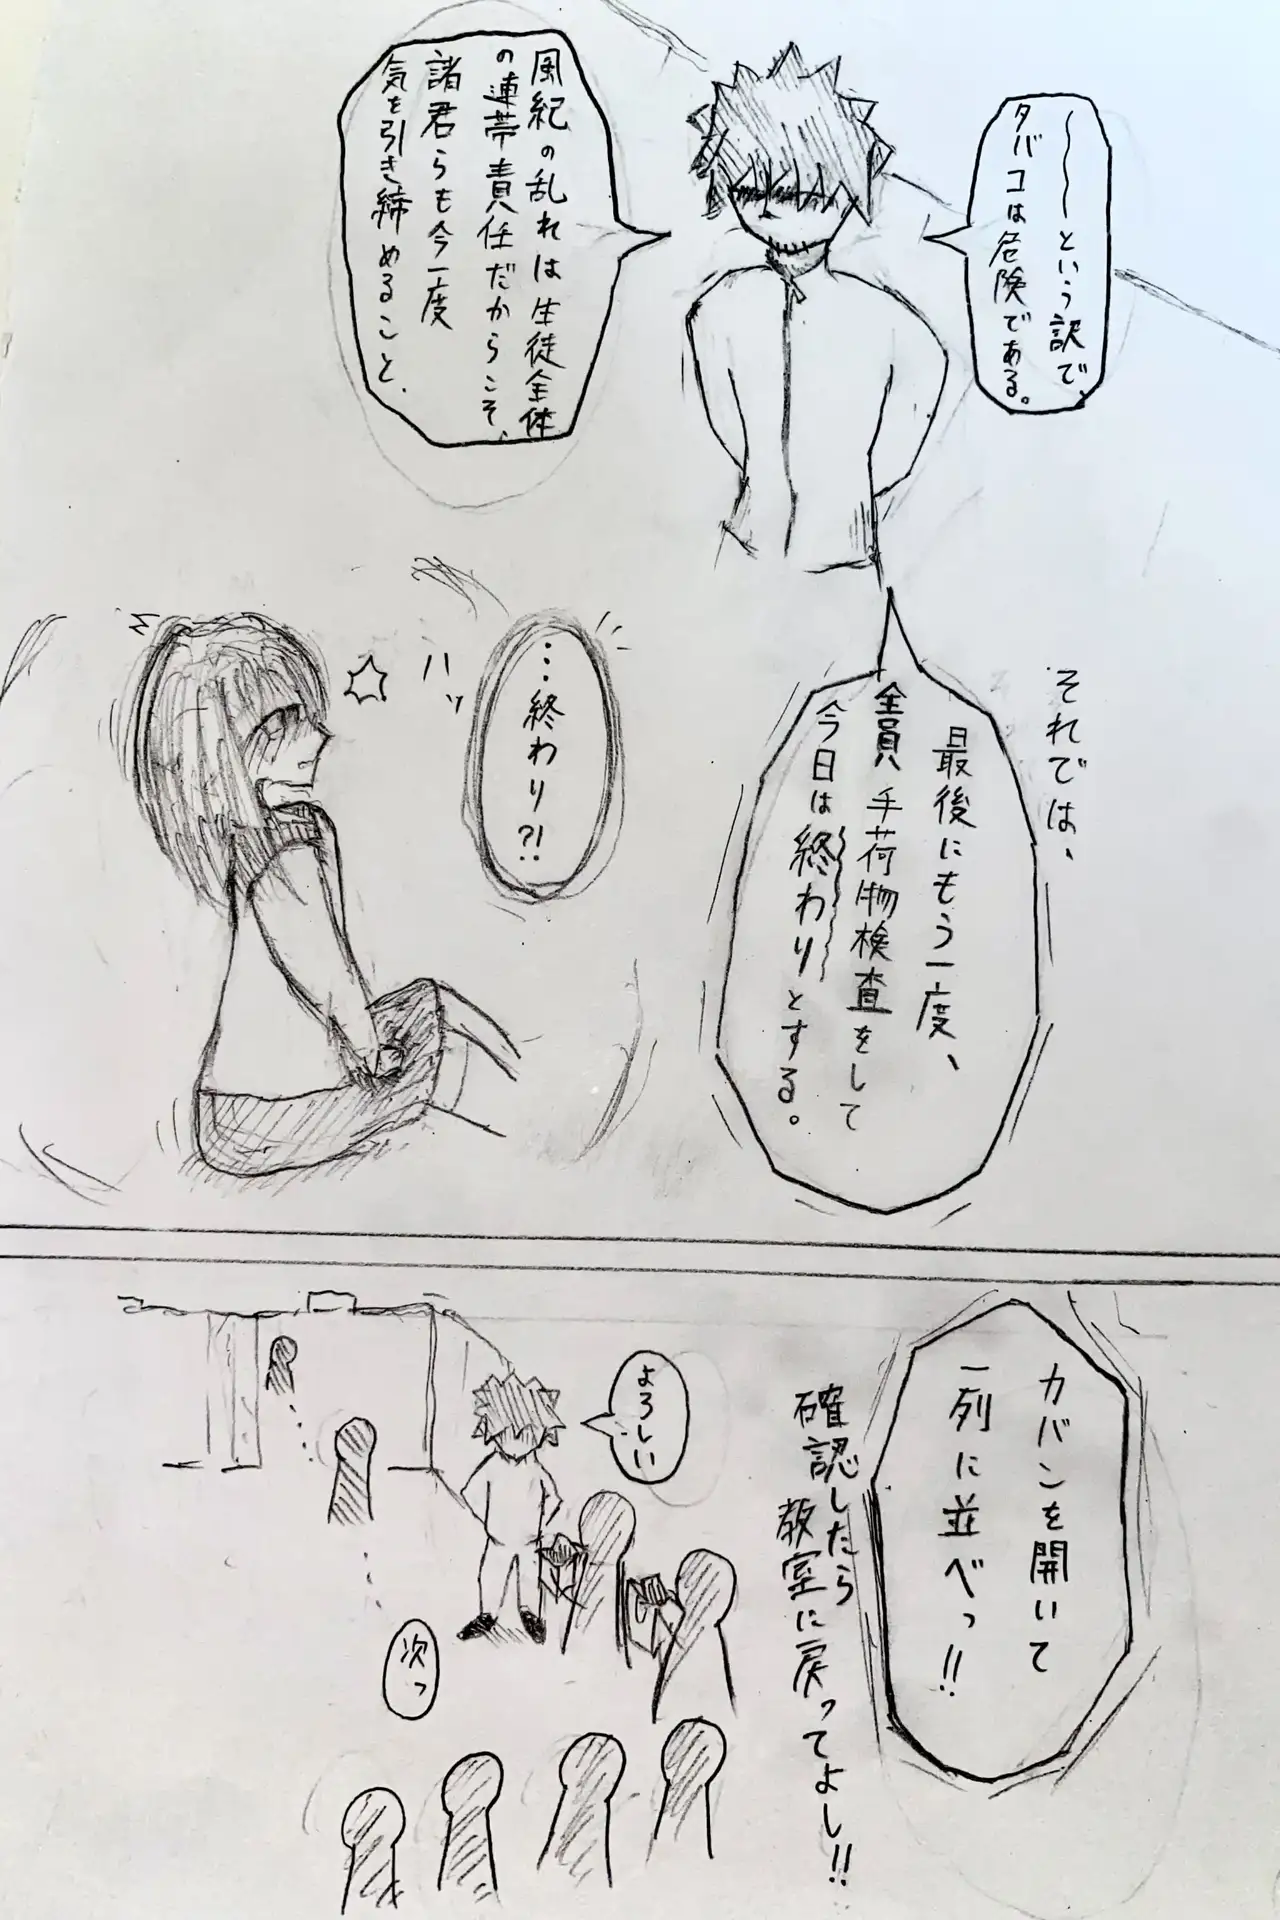 〜〜〜という訳で、
タバコは危険である。
風紀の乱れは生徒全体
の連帯責任だからこそ、
諸君らも今一度
気を引き締めること、
それでは、
最後にもう一度、
全員手荷物検査をして
今日は終わりとする。
…終わり?!
ハッ
カバンを開いて
一列に並べっ!!
確認したら
教室に戻ってよし!!
よろしい
次っ